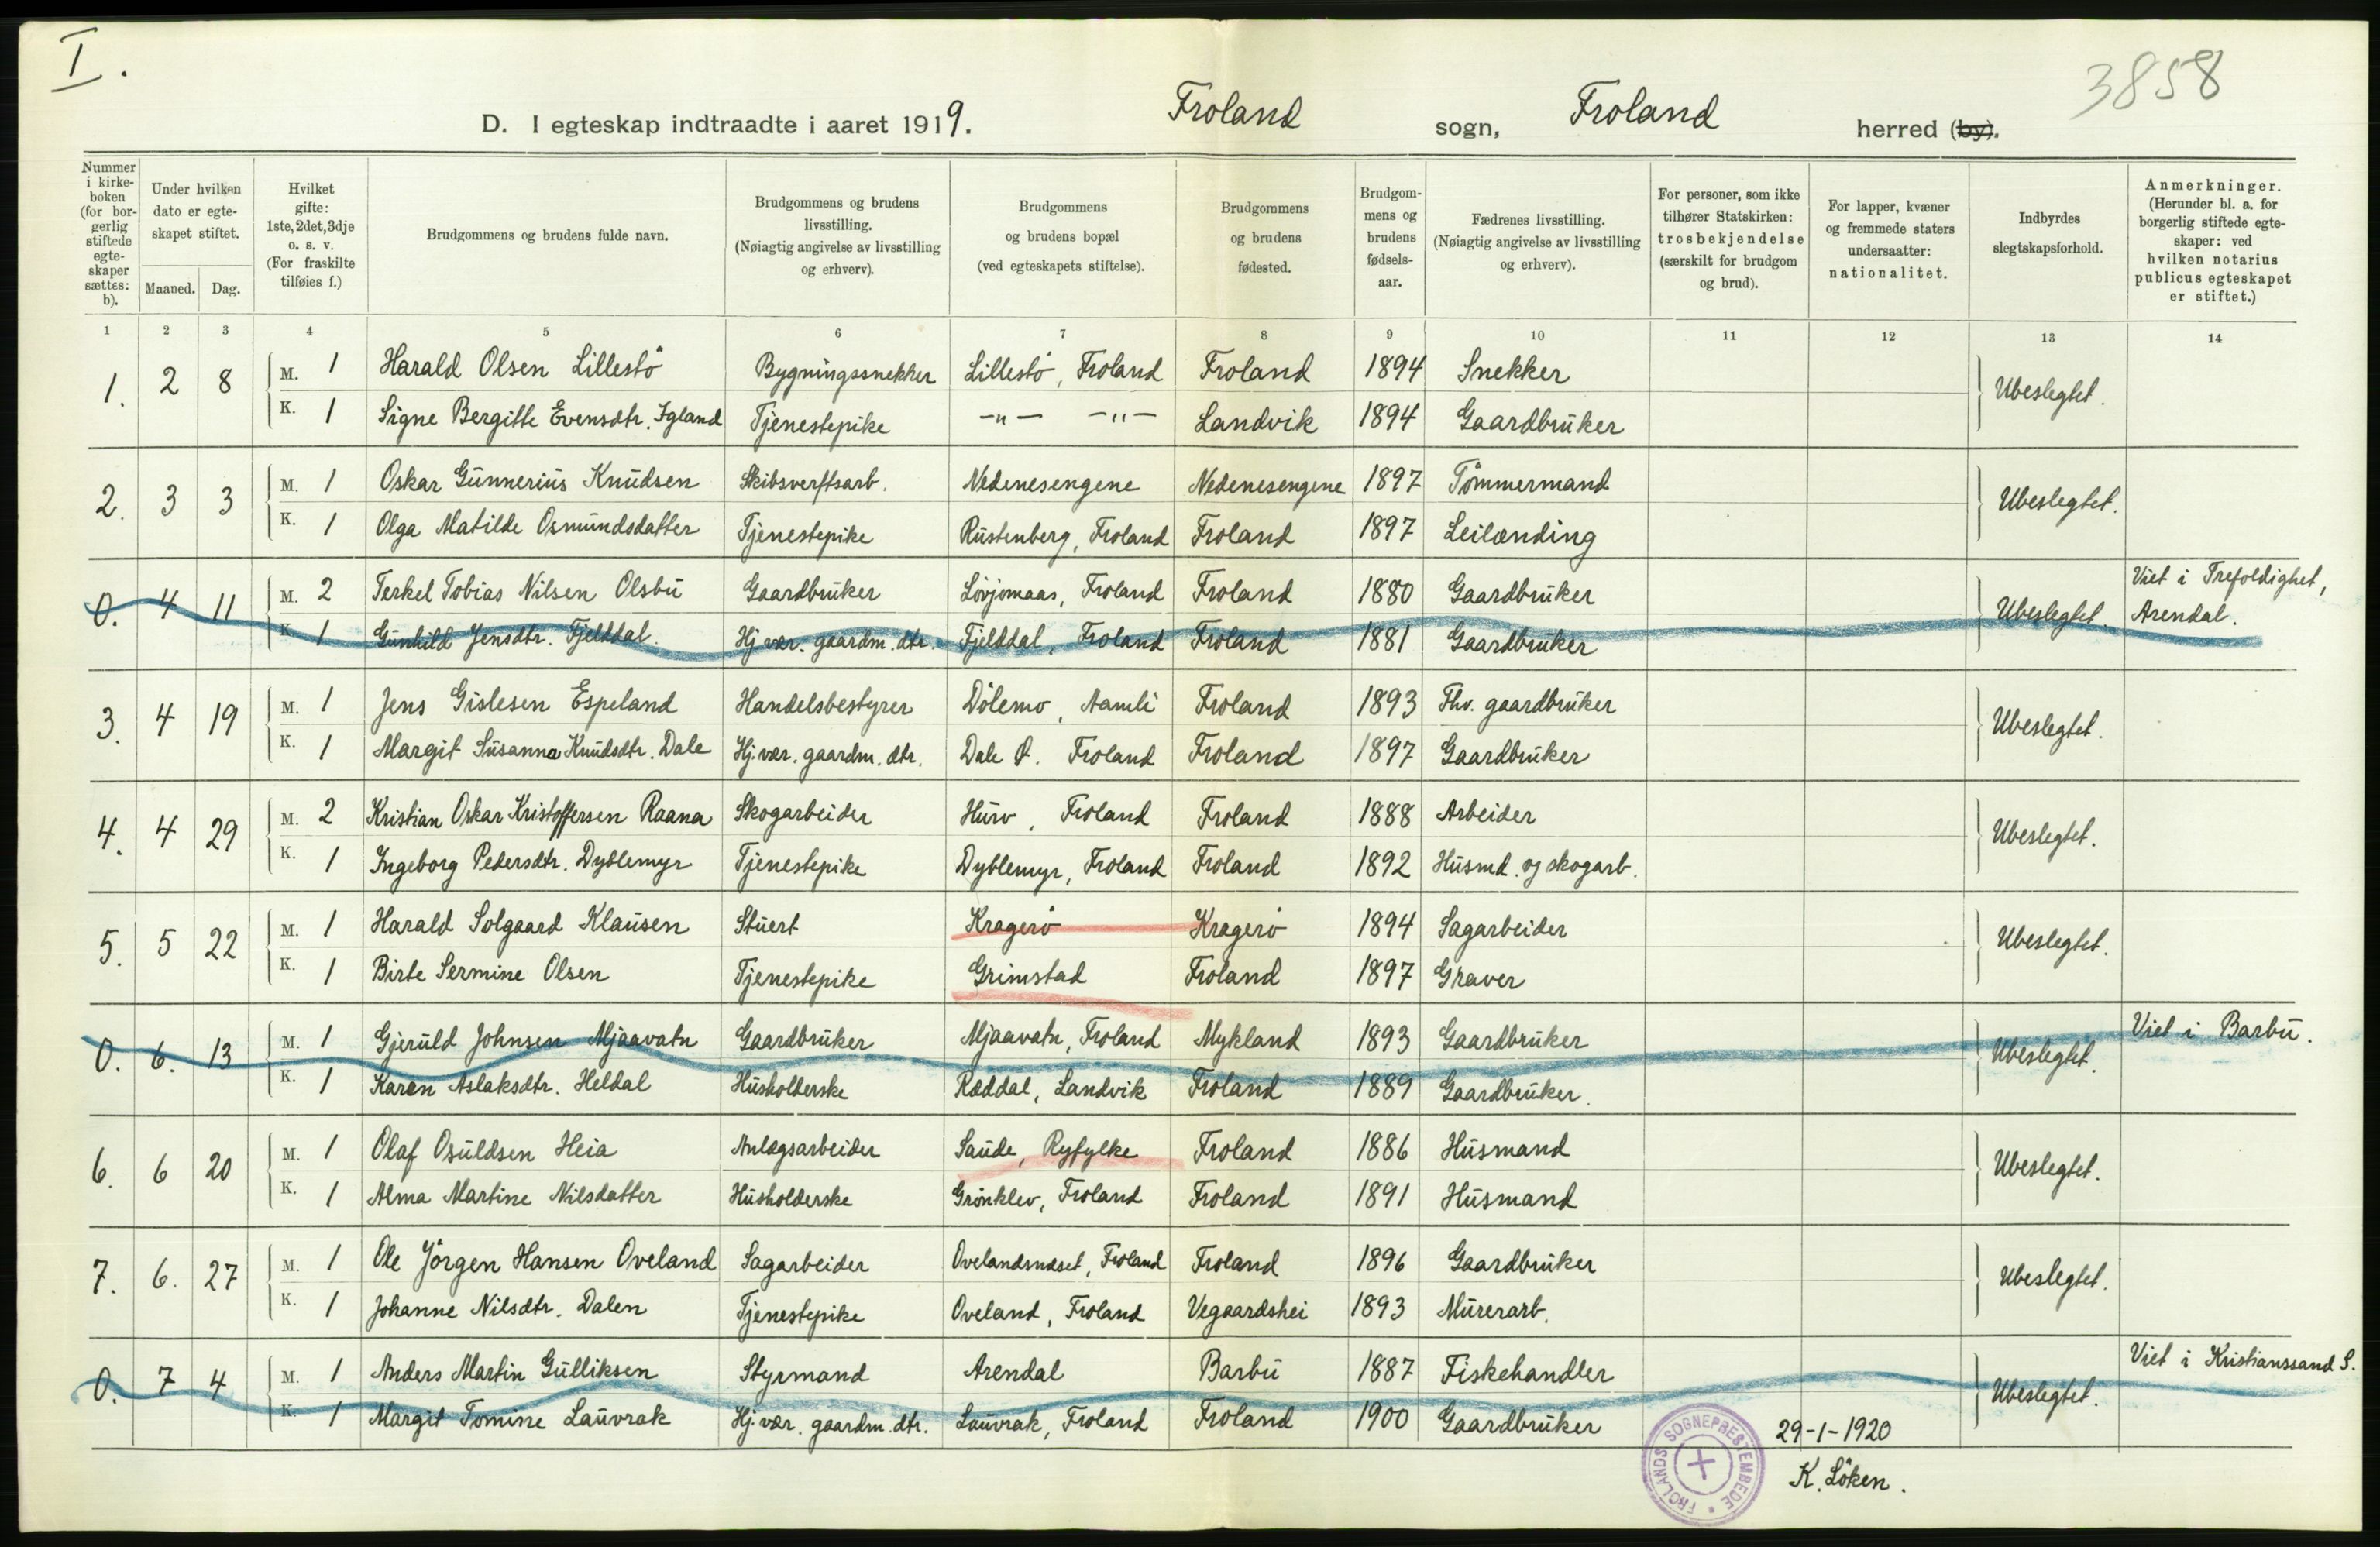 I.
3858
D. I egteskap indtraadte i aaret 1919. Froland sogn, Froland herred (by).
Nummer i kirke-boken (for bor-gerlig stiftede egte-skaper sættes: b).
Under hvilken dato er egte-skapet stiftet.
Maaned. Dag.
Hvilket gifte: 1ste, 2det, 3dje o. s. v. (For fraskilte tilføies f.)
Brudgommens og brudens fulde navn.
Brudgommens og brudens livsstilling. (Nøiagtig angivelse av livsstilling og erhverv).
Brudgommens og brudens bopæl (ved egteskapets stiftelse).
Brudgommens og brudens fødested.
Brudgom-mens og brudens fødsels-aar.
Fædrenes livsstilling. (Nøiagtig angivelse av livsstilling og erhverv).
For personer, som ikke tilhører Statskirken: trosbekjendelse (særskilt for brudgom og brud).
For lapper, kvæner og fremmede staters undersaatter: nationalitet.
Indbyrdes slegtskapsforhold.
Anmerkninger. (Herunder bl. a. for borgerlig stiftede egte-skaper: ved hvilken notarius publicus egteskapet er stiftet.)
1 2 3 4 5 6 7 8 9 10 11 12 13 14
1. 2 8 M. 1 Harald Olsen Lillestö Bygningssnekker Lillestö, Froland Froland 1894 Snekker Ubeslegtet.
K. 1 Signe Bergitte Evensdtr. Igland Tjenestepike -"- -"- Landvik 1894 Gaardbruker
2. 3 3 M. 1 Oskar Gunnerius Knudsen Skibsverftsarb. Nedenesengene Nedenesengene 1897 Tömmermand Ubeslegtet.
K. 1 Olga Matilde Osmundsdatter Tjenestepike Rustenberg, Froland Froland 1897 Leilænding
0. 4 11 M. 2 Terkel Tobias Nilsen Olsbu Gaardbruker Lövjomaas, Froland Froland 1880 Gaardbruker Ubeslegtet. Viet i Trefoldighet, Arendal.
K. 1 Gunhild Jensdtr. Fjelddal. Hj. vær. gaardm. dtr. Fjelddal, Froland Froland 1881 Gaardbruker
3. 4 19 M. 1 Jens Gislesen Espeland Handelsbestyrer Dölemo, Aamli Froland 1893 Fhv. gaardbruker Ubeslegtet.
K. 1 Margit Susanna Knudsdtr. Dale Hj. vær. gaardm. dtr. Dale Ø. Froland Froland 1897 Gaardbruker
4. 4 29 M. 2 Kristian Oskar Kristoffersen Raana Skogarbeider Hurv, Froland Froland 1888 Arbeider Ubeslegtet.
K. 1 Ingeborg Pedersdtr. Dyblemyr Tjenestepike Dyblemyr, Froland Froland 1892 Husmd. og skogarb.
5. 5 22 M. 1 Harald Solgaard Klausen Stuert Kragerö Kragerö 1894 Sagarbeider Ubeslegtet.
K. 1 Birte Sermine Olsen Tjenestepike Grimstad Froland 1897 Graver
0. 6. 13 M. 1 Gjeruld Johnsen Mjaavatn Gaardbruker Mjaavatn, Froland Mykland 1893 Gaardbruker Ubeslegtet. Viet i Barbu.
K. 1 Karen Aslaksdtr. Heldal Husholderske Ræddal, Landvik Froland 1889 Gaardbruker.
6. 6 20 M. 1 Olaf Osuldsen Heia Anlægsarbeider Saude, Ryfylke Froland 1886 Husmand Ubeslegtet.
K. 1 Alma Martine Nilsdatter Husholderske Grönklev, Froland Froland 1891 Husmand
7. 6. 27 M. 1 Ole Jörgen Hansen Oveland Sagarbeider Ovelandsndset, Froland Froland 1896 Gaardbruker Ubeslegtet.
K. 1 Johanne Nilsdtr. Dalen Tjenestepike Oveland, Froland Vegaardshei 1893 Murerarb.
0. 7 4 M. 1 Anders Martin Gulliksen Styrmand Arendal Barbu 1887 Fiskehandler Ubeslegtet. Viet i Kristianssand S.
K. 1 Margit Tomine Lauvrak Hj. vær. gaardm. dtr. Lauvrak, Froland Froland 1900 Gaardbruker
FROLANDS SOGNEPRESTEMBEDE
29-1-1920
K. Löken.